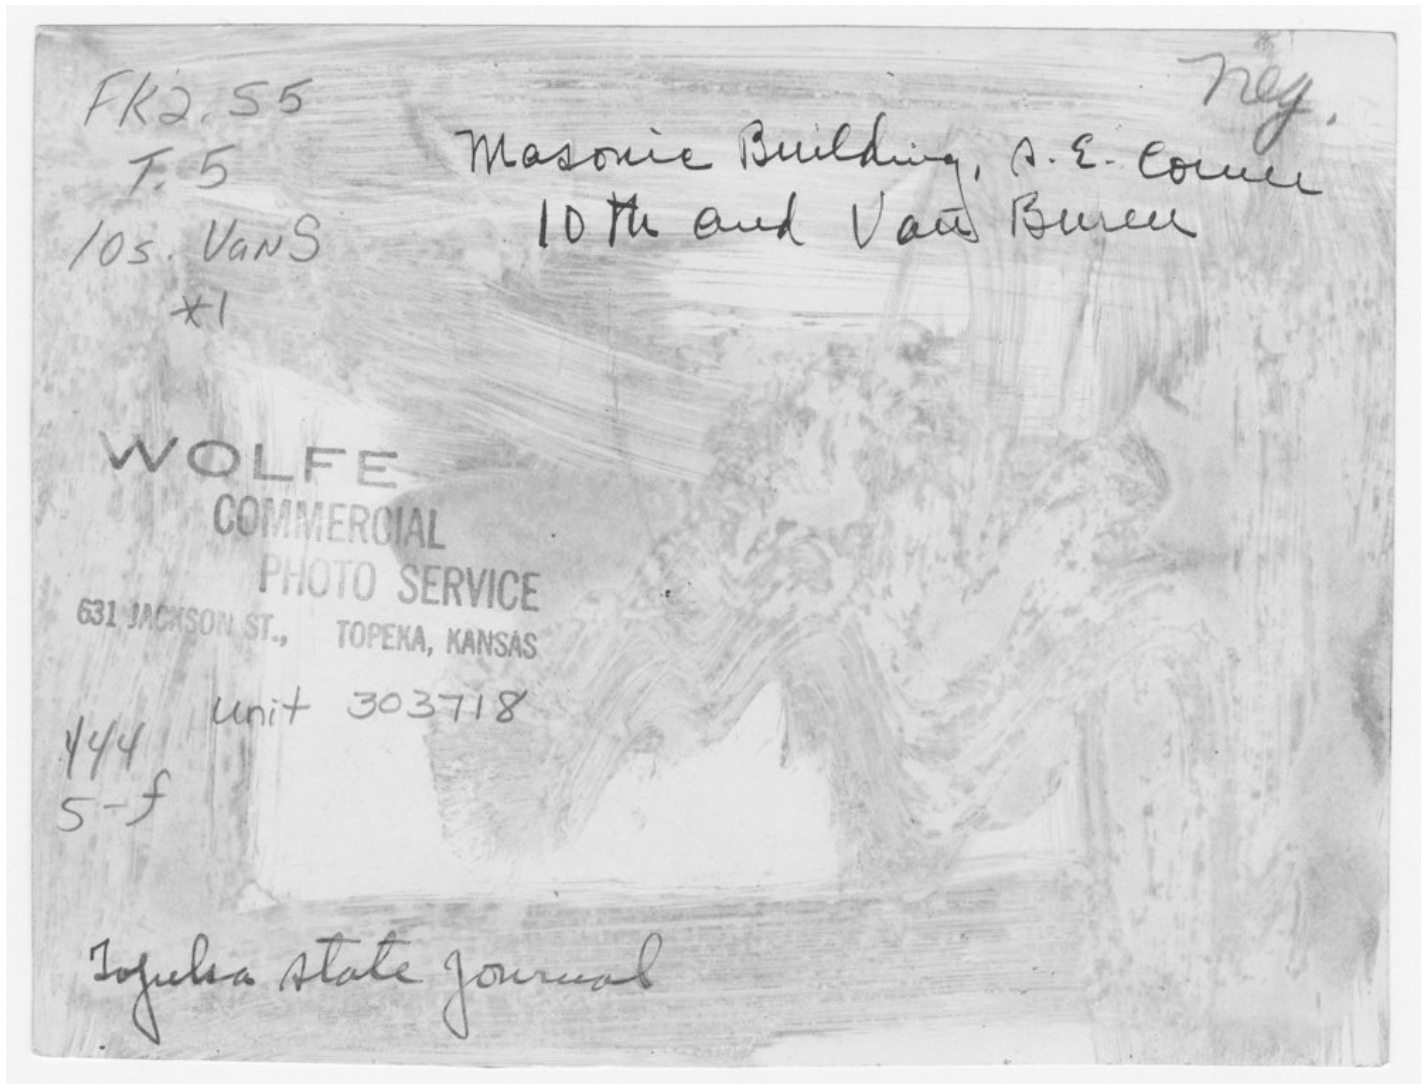 FK2.S5
T.5
10s.VanS
*1
Neg.
Masonic Building, S.E. Corner
10th and Van Buren
WOLFE
COMMERCIAL
PHOTO SERVICE
631 JACKSON ST., TOPEKA, KANSAS
unit 303718
444
5-f
Topeka State Journal